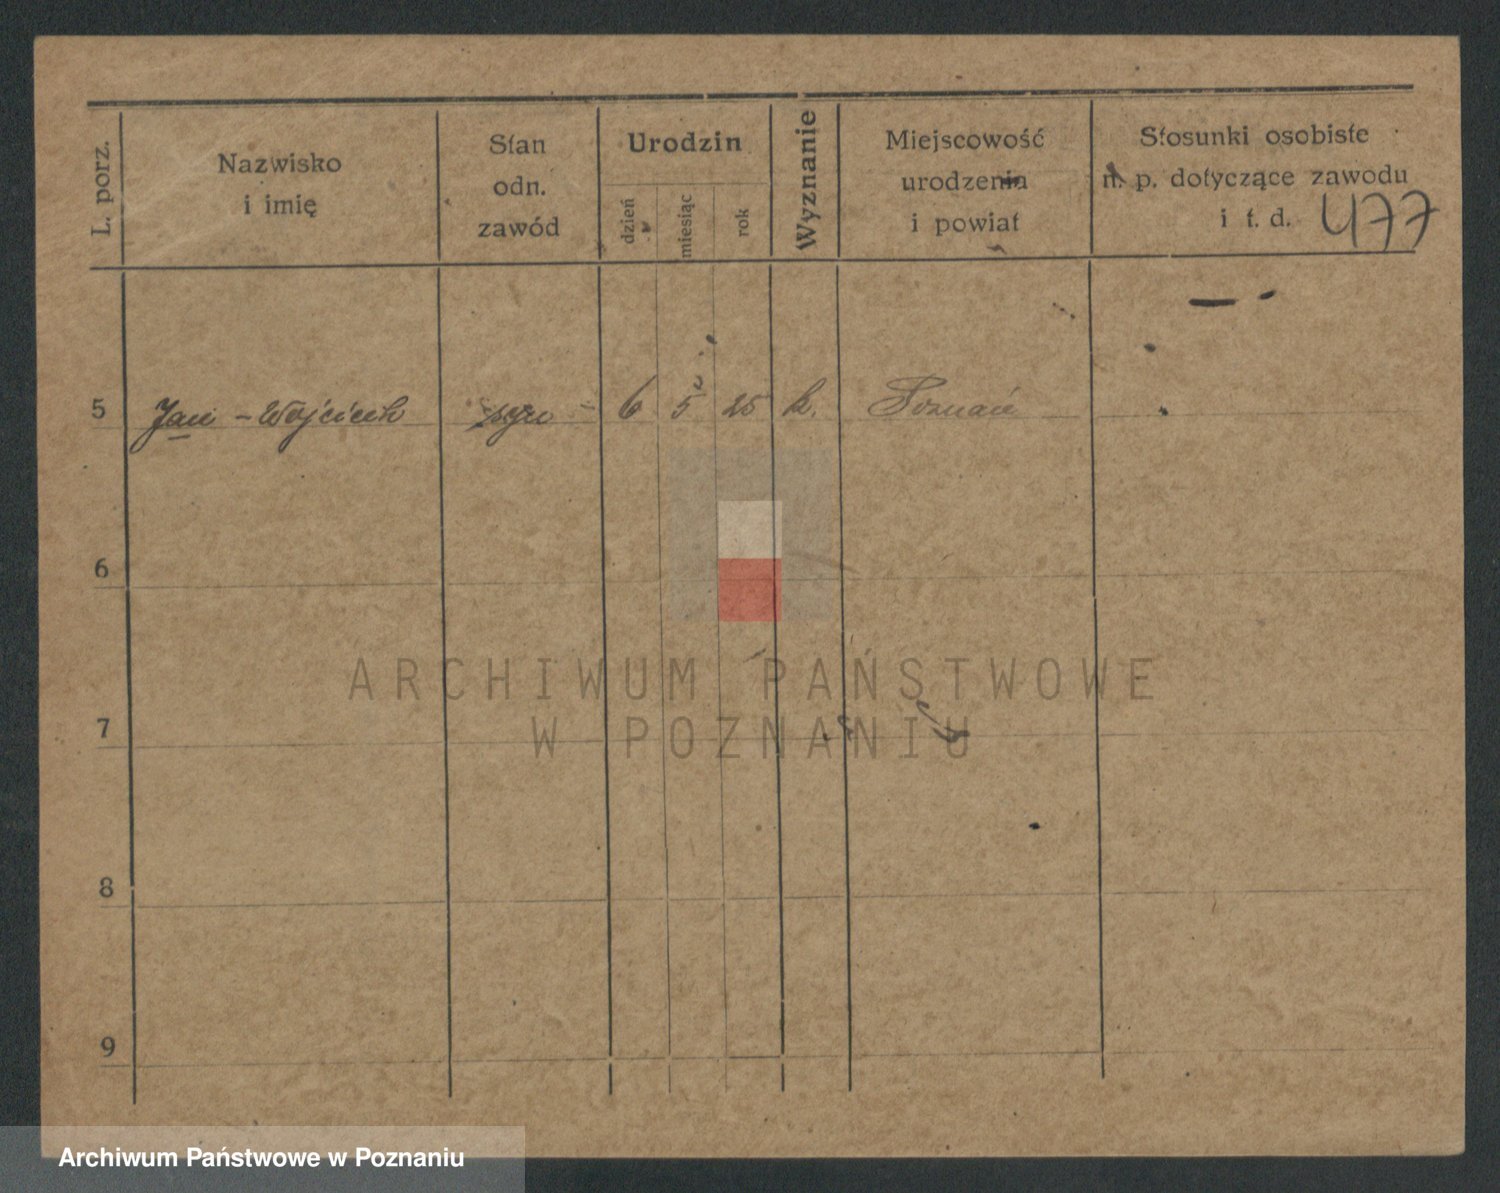 L. porz.
Nazwisko
i imię
Stan
odn.
zawód
Urodzin
dzień
miesiąc
rok
Wyznanie
Miejscowość
urodzenia
i powiat
Stosunki osobiste
n. p. dotyczące zawodu
i t. d. 477
5 Jan - Wojciech syn 6 5 25 k. Poznań
6
7
8
9
ARCHIWUM PAŃSTWOWE
W POZNANIU
Archiwum Państwowe w Poznaniu